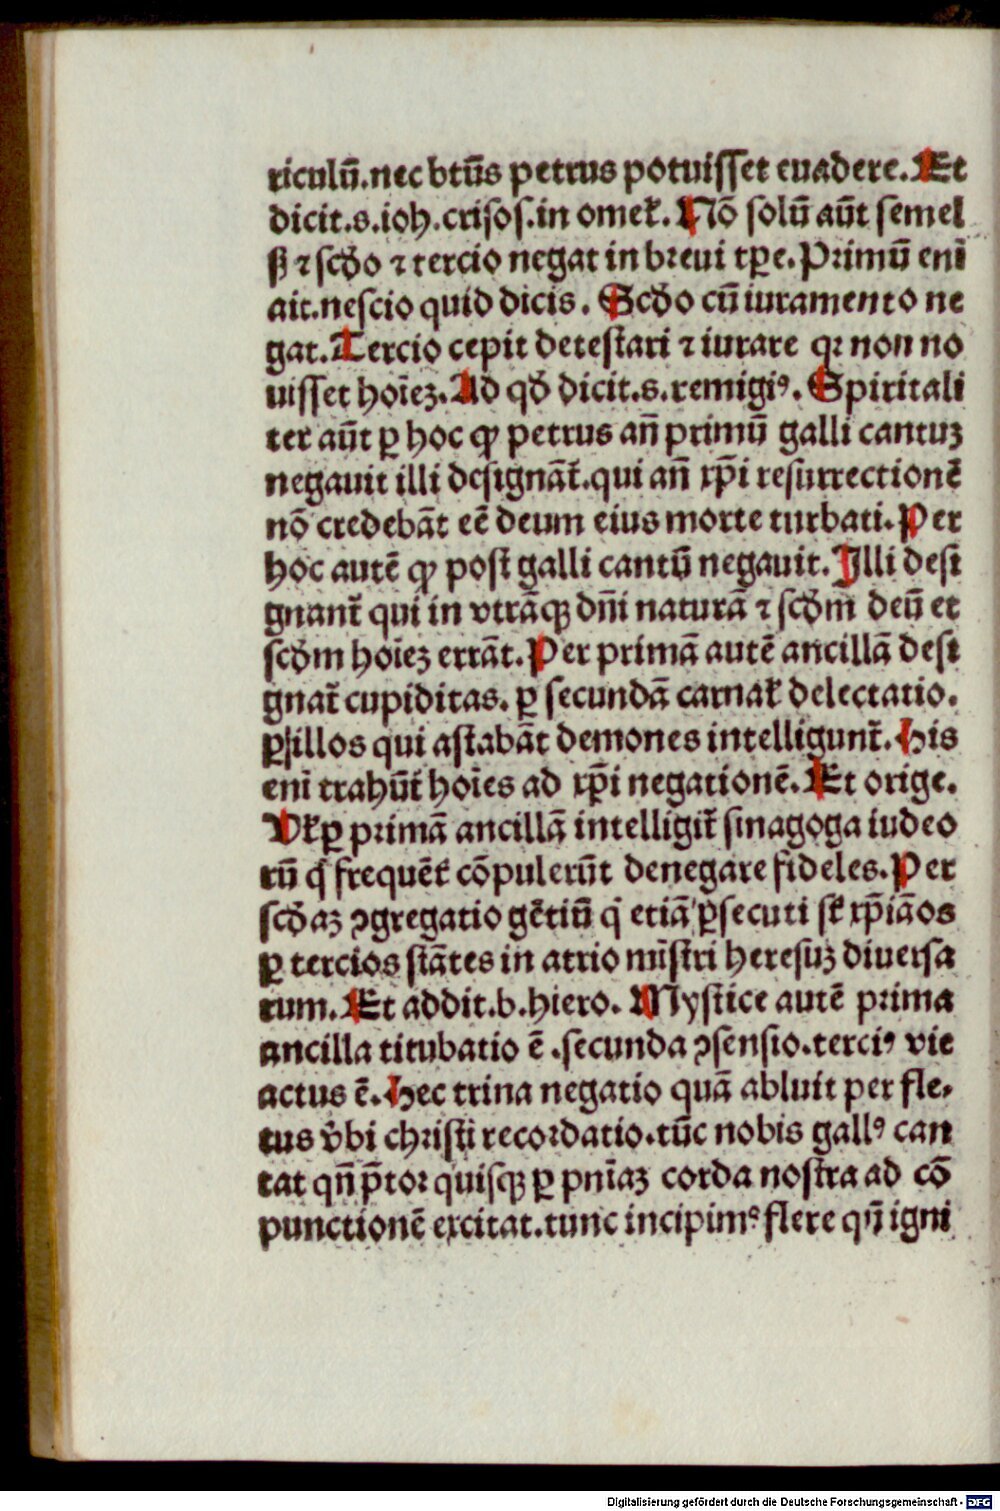 riculū.nec btūs petrus potuisset euadere. Et
dicit.s.ioh.crisos.in omeł. Nō solū aūt semel
sꝫ ⁊ scḋo ⁊ tercio negat in breui tꝑe. Primū enī
ait.nescio quid dicis. Scḋo cū iuramento ne
gat. Tercio cepit detestari ⁊ iurare qꝛ non no
uisset hoīez. Ad qḋ dicit.s.remigiꝰ. Spiritali
ter aūt ꝑ hoc ꝙ petrus an̄ primū galli cantuz
negauit illi designāt᷑.qui an̄ xp̄i resurrectionē
nō credebāt eē deum eius morte turbati. Per
hoc autē ꝙ post galli cantū negauit. Illi desi
gnant᷑ qui in vtrāqꝫ dn̄i naturā ⁊ scḋm deū et
scḋm hoīez errāt. Per primā autē ancillā desi
gnat᷑ cupiditas. ꝑ secundā carnał delectatio.
ꝑ illos qui astabāt demones intelligunt᷑. His
enī trahūt᷑ hoīes ad xp̄i negationē. Et orige.
Uł ꝑ primā ancillā intelligit᷑ sinagoga iudeo
rū q̄ frequēt᷑ cōpulerūt denegare fideles. Per
scḋaz ꝯgregatio gētiū q̇ etiā ꝑsecuti st᷑ xp̄iāos
ꝑ tercios stātes in atrio mīstri heresuz diuersa
rum. Et addit.b.hiero. Mystice autē prima
ancilla titubatio ē .secunda ꝯsensio.terciꝰ vir
actus ē. Hec trina negatio quā abluit per fle-
tus v̇bi christi recordatio.tūc nobis gallꝰ can
tat qn̄ p̄tor quisqꝫ ꝑ pnīaz corda nostra ad cō
punctionē excitat.tunc incipimꝰ flere qn̄ igni
Digitalisierung gefördert durch die Deutsche Forschungsgemeinschaft - DFG